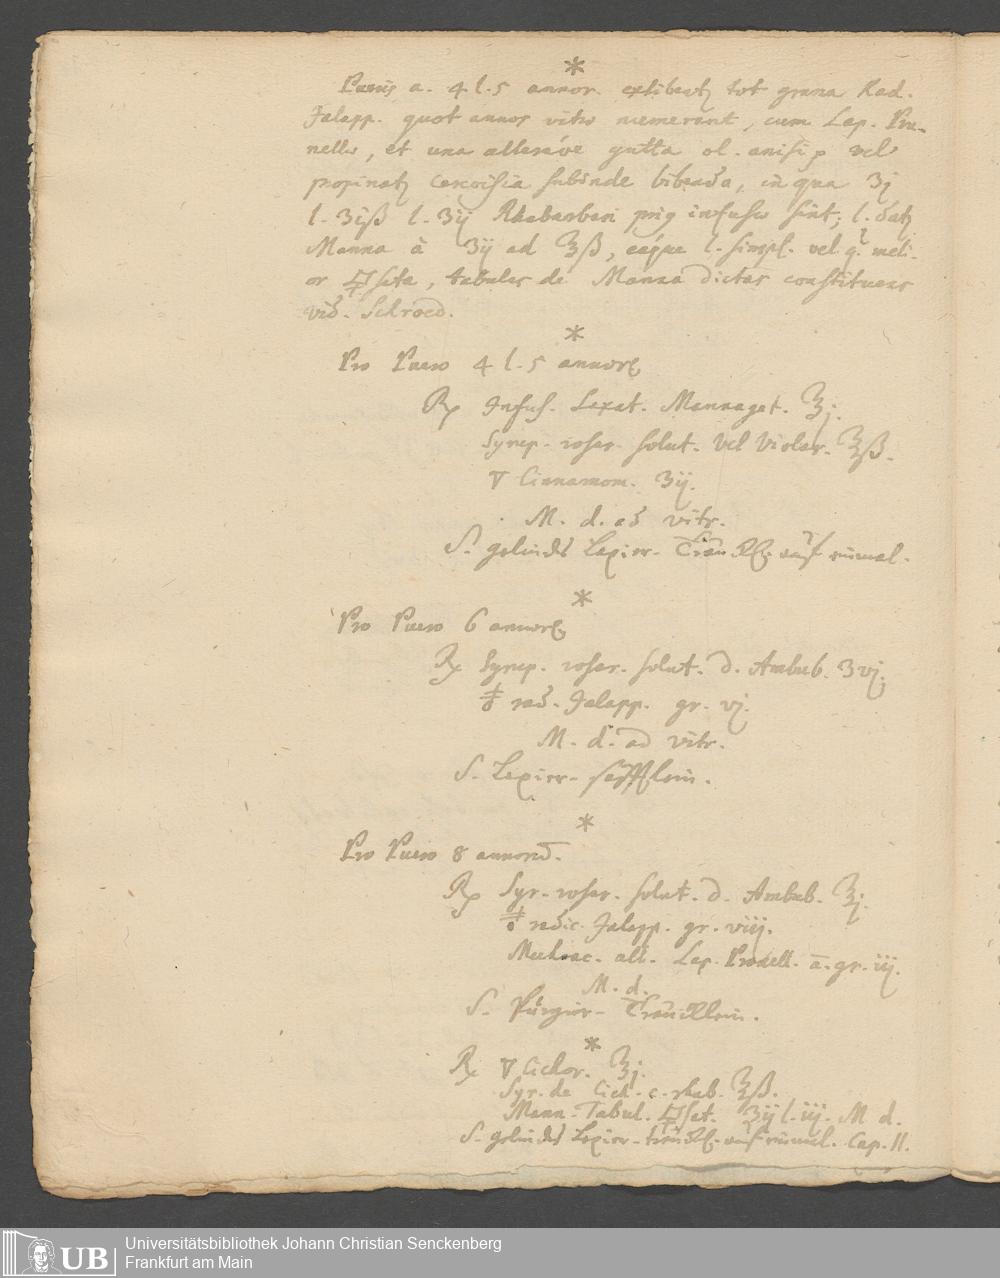 *
Pueris a. 4 l. 5 annor. exhibentʒ tot grana Rad.
Jalapp. quot annos vitæ numerant, cum Lap. Pru-
nellæ, et una alterave gutta ol. anisi, vel
propinatʒ cerevisia subinde bibenda, in qua ʒj
l. ʒiß l. ʒij Rhabarbari prius infusæ sint; l. datʒ
Manna à ʒij ad ℥ß, eaque l. simpl. vel meli-
or 🜿sata, tabulas de Manna dictas constituens
vid. Schroed.
*
Pro Puero 4 l. 5 annorꝝ
℞ Infus. Laxat. Mannaget. ℥j.
Syrup. rosar. solut. vel violar. ℥ß.
🜄 Cinnamom. ʒij.
M. d. ad vitr.
S. gelindes Laxier-Tränckl. auf einmal.
*
Pro Puero 6 annorꝝ
℞ Syrup. rosar. solut. d. Ambub. ʒvj.
rad. Jalapp. gr. vj.
M. d. ad vitr.
S. Laxier-säfftlein.
*
Pro Puero 8 annorꝝ.
℞ Syr. rosar. solut. d. Ambub. ℥j.
radic. Jalapp. gr. viij.
Mechoac. alb. Lap. Prunell. ā. gr. iij.
M. d.
S. Purgier-Träncklein.
*
℞ 🜄 Cichor. ℥j.
Syr. de Cich. c. rhab. ℥ß.
Mann. Tabul. 🜿sat. ʒij l. iij. M d.
S. gelindes Laxier-tränckl. auf einmal. Cap. II.
UB Universitätsbibliothek Johann Christian Senckenberg
Frankfurt am Main